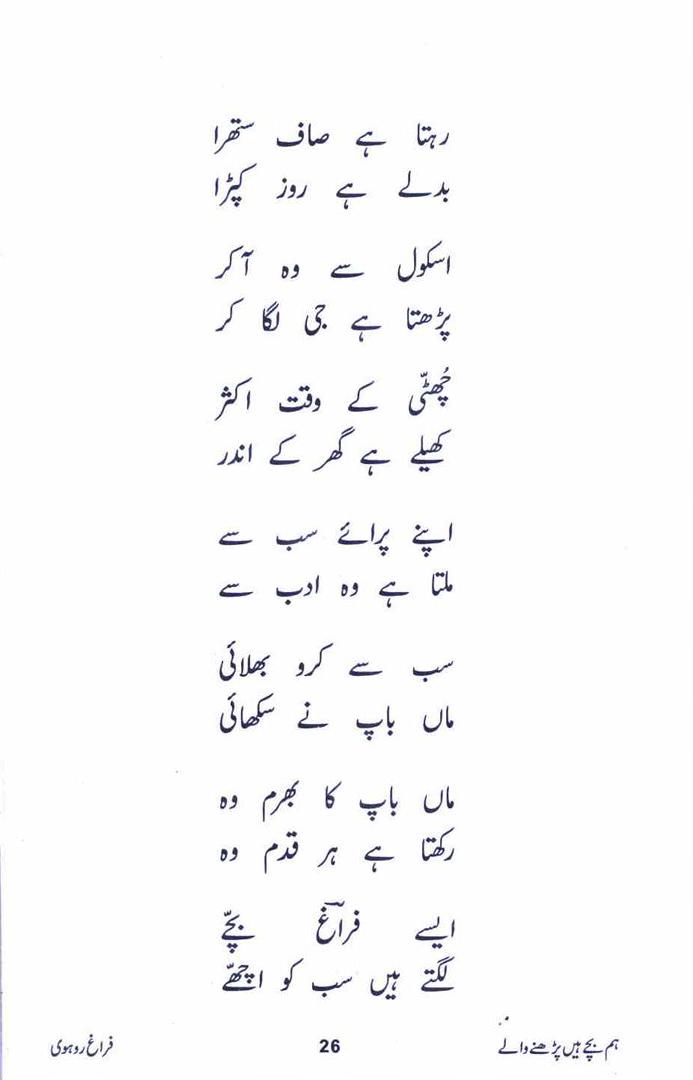 رہتا ہے صاف ستھرا
بدلے ہے روز کپڑا
اسکول سے وہ آ کر
پڑھتا ہے جی لگا کر
چُھٹّی کے وقت اکثر
کھیلے ہے گھر کے اندر
اپنے پرائے سب سے
ملتا ہے وہ ادب سے
سب سے کرو بھلائی
ماں باپ نے سکھائی
ماں باپ کا بھرم وہ
رکھتا ہے ہر قدم وہ
ایسے فراغؔ بچّے
لگتے ہیں سب کو اچھّے
ہم بچے ہیں پڑھنے والے
26
فراغ روہوی